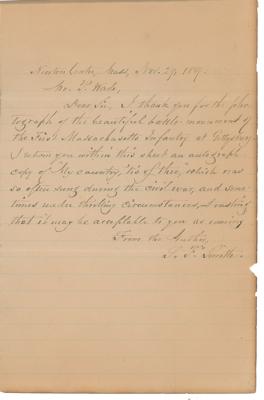 Newton Centre, Mass, Nov. 29, 189
Mr. P. Wade,
Dear Sir, I thank you for the pho-
tograph of the beautiful battle-monument of
the First Massachusetts Infantry at Gettysburg
I return you within this sheet an autograph
copy of "My country, 'tis of thee," which was
so often sung during the civil war, and some-
times under thrilling circumstances, trusting
that it may be acceptable to you as coming
From the Author,
S. F. Smith.